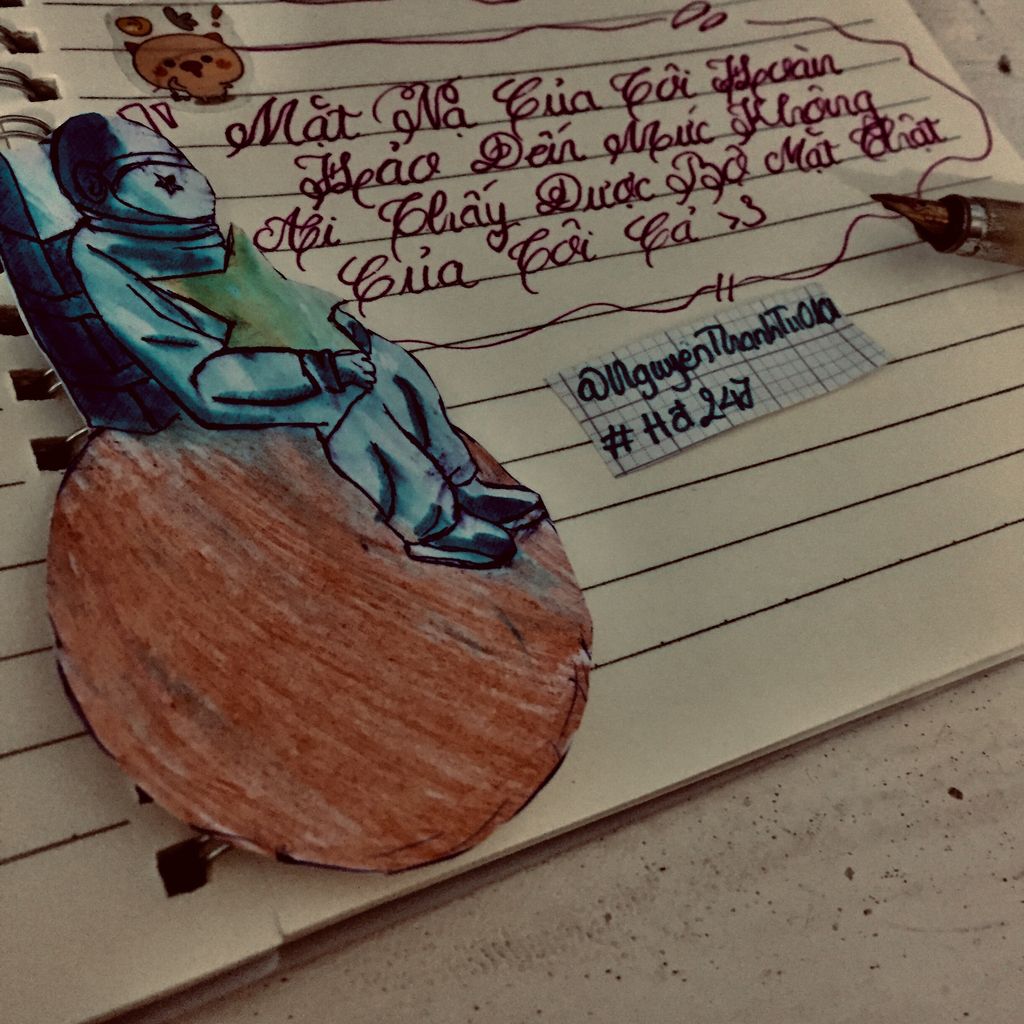 Mặt Nạ Của Tôi Hoàn
Hảo Đến Mức Không
Ai Thấy Được Bộ Mặt Thật
Của Tôi Cả >3
@NguyenThanhTu01a
#Hd247